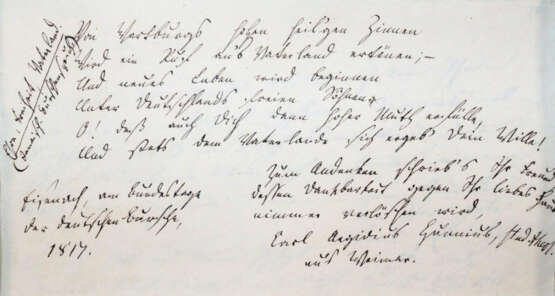 Von Wartburgs hohen heilgen Zinnen
Wird ein Ruf aus Vaterland ertönen;–
Und neues Leben wird beginnen
Unter Deutschlands freien Söhnen,
O! daß auch Dich denn hoher Muth erfülle,
Und stets dem Vaterlande sich ergeb Dein Wille!
Zum Andenken schrieb's Ihr Freund
dessen Dankbarkeit gegen Ihr liebes Haus
nimmer verlöschen wird,
Carl Aegidius Hunnius, stud. theol.
aus Weimar.
Eisenach, am Bundestage
der deutschen Bursche,
1817.
Ehre! Freiheit! Vaterland!